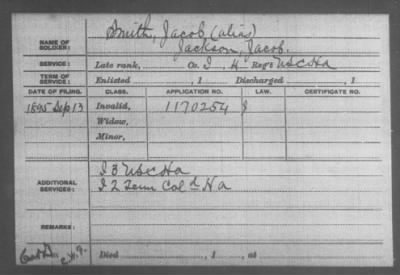 NAME OF SOLDIER: Smith, Jacob (alias)
Jackson, Jacob.
SERVICE: Late rank, Co. I, 4 Reg't U S C Ha
TERM OF SERVICE: Enlisted , 1 Discharged , 1
DATE OF FILING. CLASS. APPLICATION NO. LAW. CERTIFICATE NO.
1895 Sep 13 Invalid, 1170254
Widow,
Minor,
ADDITIONAL SERVICES: I 3 U S C Ha
I 2 Tenn Col d Ha
REMARKS:
Died , 1 , at